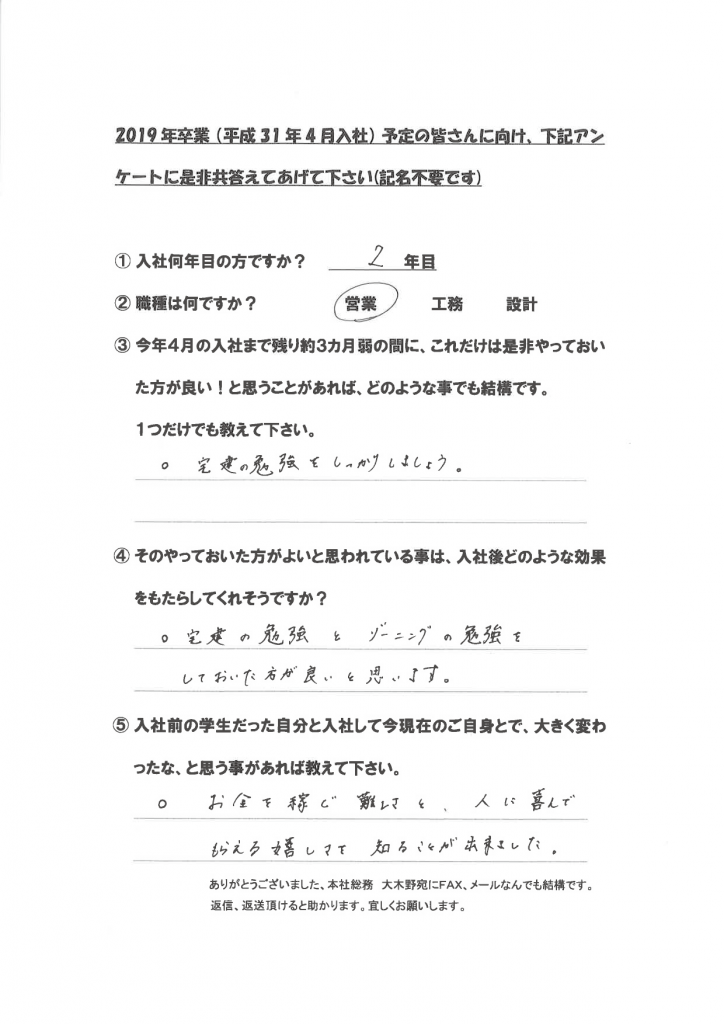 2019年卒業(平成31年4月入社)予定の皆さんに向け、下記アン
ケートに是非共答えてあげて下さい(記名不要です)
① 入社何年目の方ですか? 2 年目
② 職種は何ですか? 営業 工務 設計
③ 今年4月の入社まで残り約3カ月弱の間に、これだけは是非やっておい
た方が良い!と思うことがあれば、どのような事でも結構です。
1つだけでも教えて下さい。
○ 宅建の勉強をしっかりしましょう。
④ そのやっておいた方がよいと思われている事は、入社後どのような効果
をもたらしてくれそうですか?
○ 宅建の勉強とゾーニングの勉強を
しておいた方が良いと思います。
⑤ 入社前の学生だった自分と入社して今現在のご自身とで、大きく変わ
ったな、と思う事があれば教えて下さい。
○ お金を稼ぐ難しさと、人に喜んで
もらえる嬉しさを知ることが出来ました。
ありがとうございました、本社総務 大木野宛にFAX、メールなんでも結構です。
返信、返送頂けると助かります。宜しくお願いします。